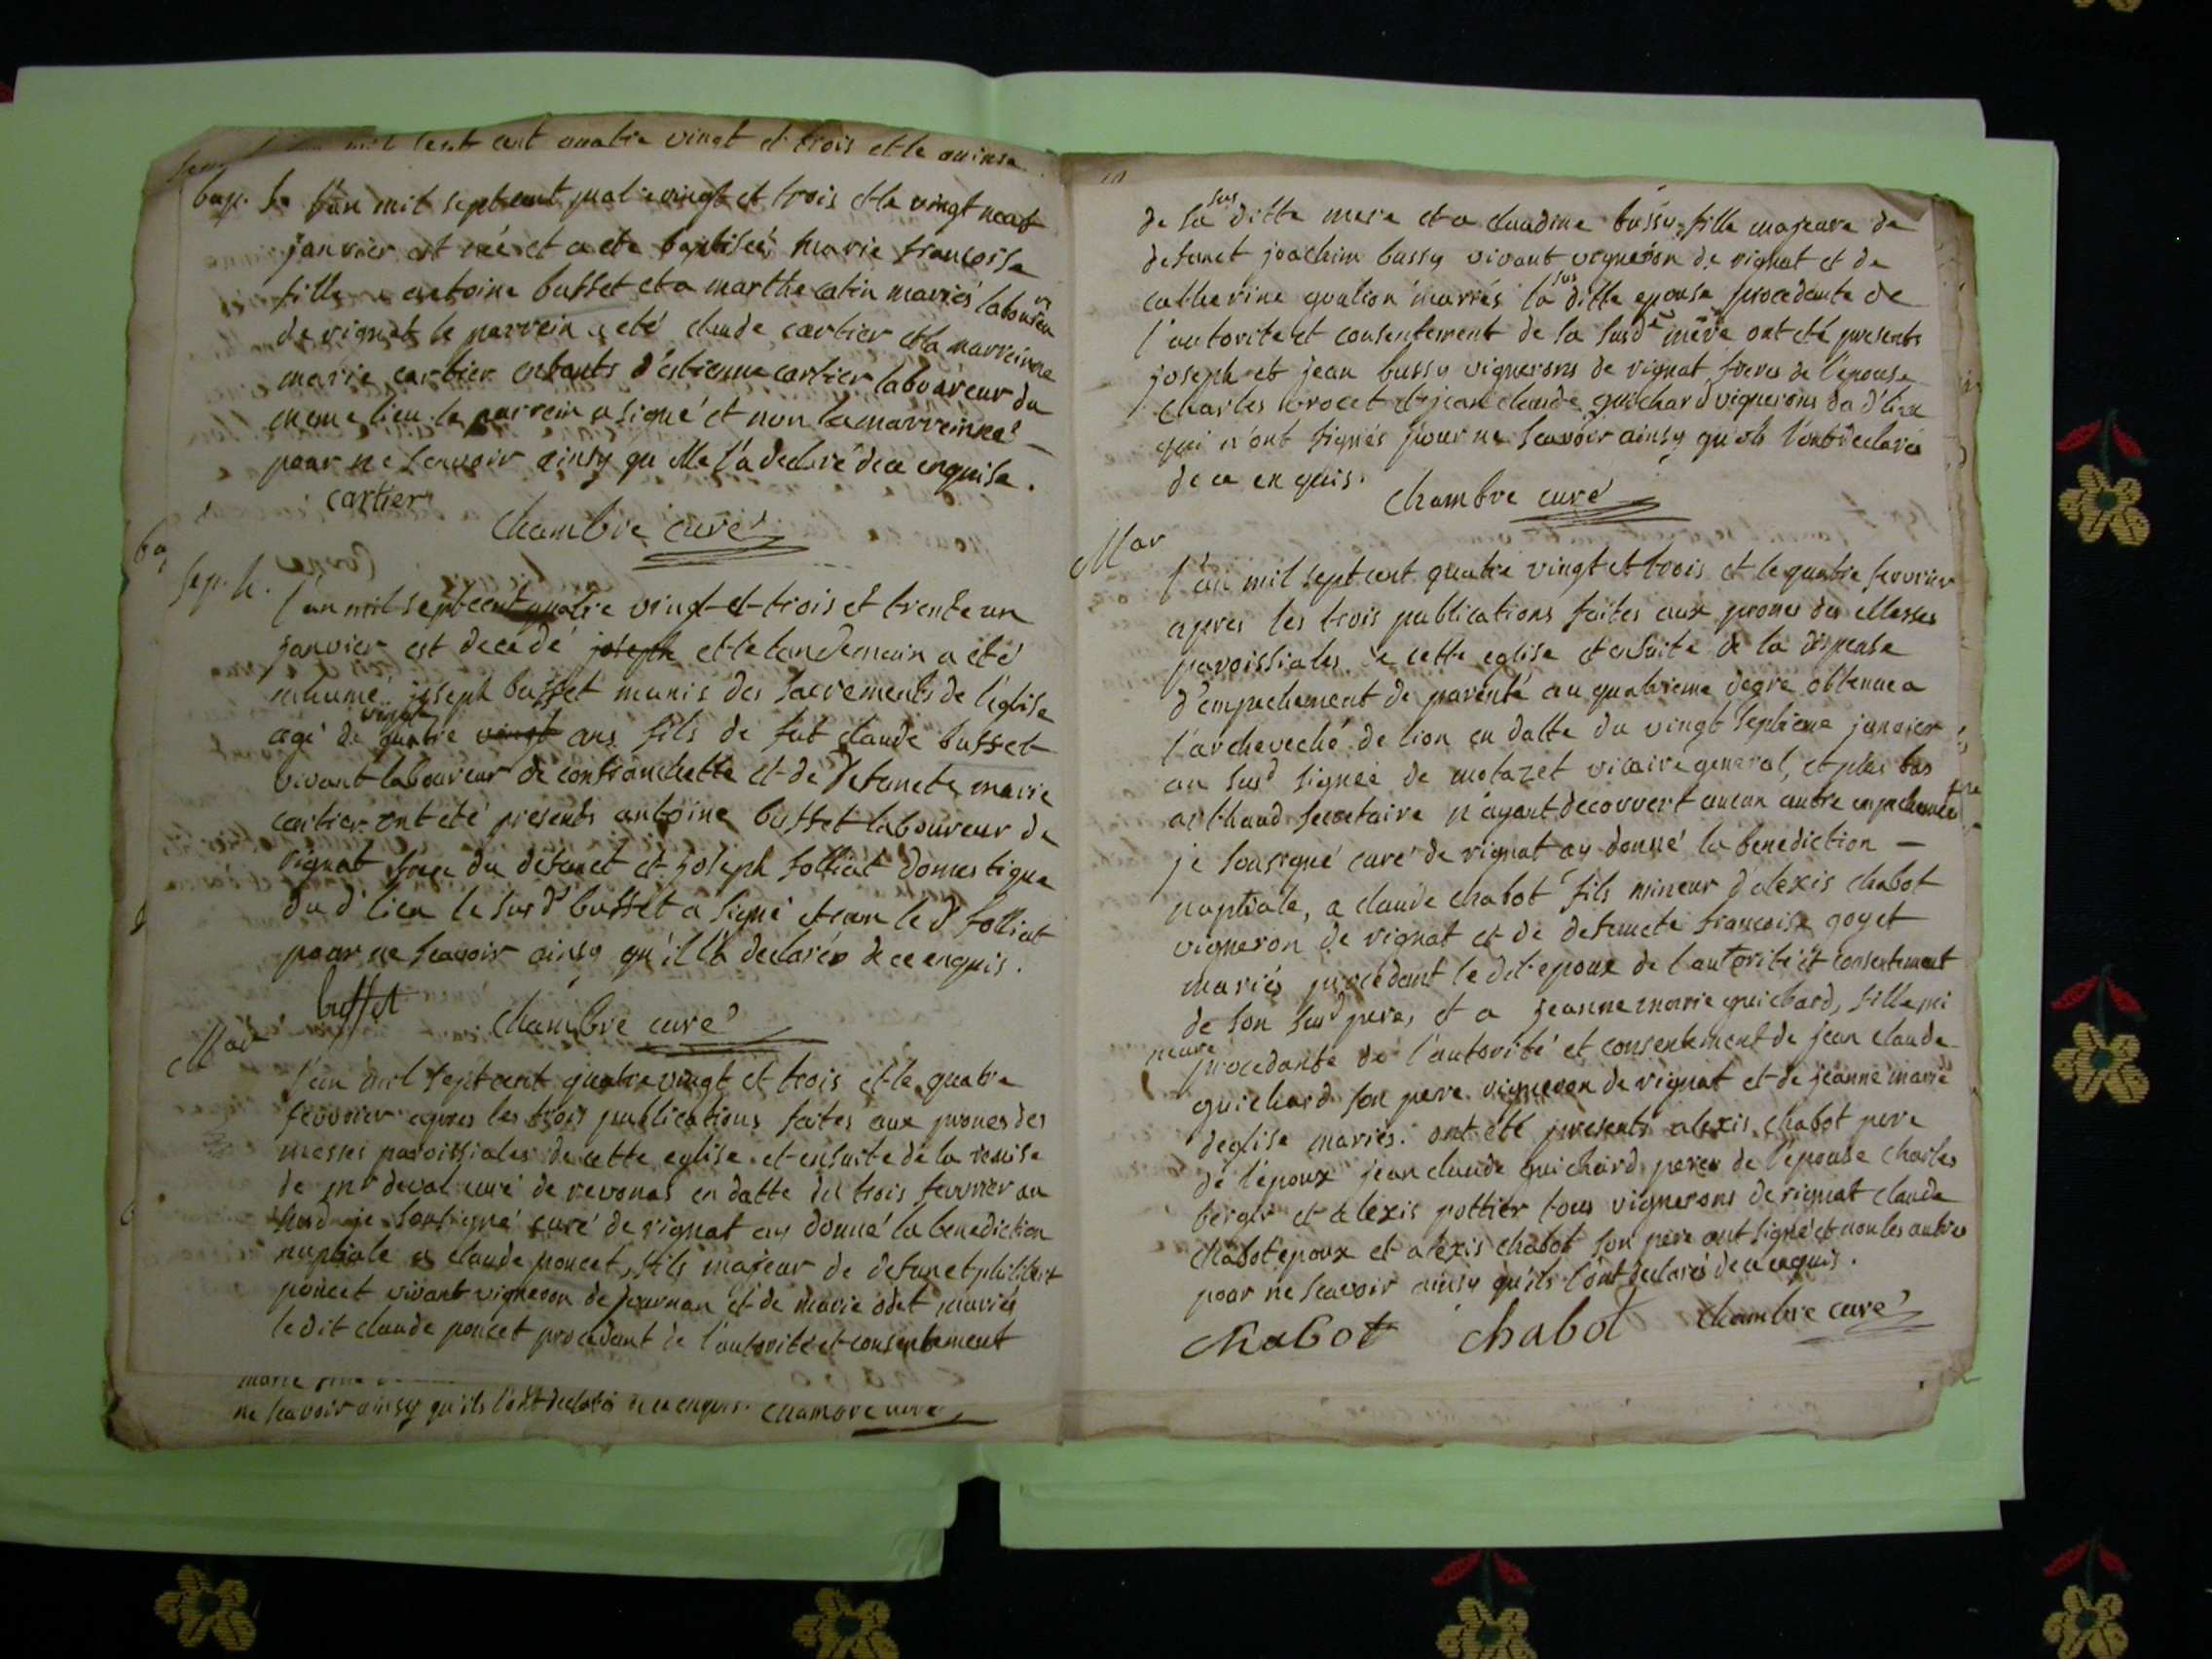 mil sept cent quatre vingt et trois et le quinse
bap. l'an mil sept cent quatre vingt et trois et le vingt neuf
janvier est née et a été baptisée marie françoise
fille a antoine buffet et a marthe catin mariés laboureur
de rignat le parrein a été claude cartier et la marreinne
marie cartier enfants d'estienne cartier laboureur du
meme lieu le parrein a signé et non la marreinne
pour ne scavoir ainsy qu'elle l'a declaré de ce enquise.
cartier
Chambre curé
Sep. l'an mil sept cent quatre vingt et trois et trente un
janvier est decedé joseph et le lendemain a été
inhumé joseph buffet munis des sacrements de l'eglise
agé de vingt quatre vingt ans fils de fut claude buffet
vivant laboureur de confranchette et de defuncte marie
cartier ont été presents antoine buffet laboureur de
rignat frere du defunct et joseph folliat domestique
du d' lieu le susd' buffet a signé et non le d' folliat
pour ne scavoir ainsy qu'il l'a declaré de ce enquis.
buffet
Chambre curé
Mar
l'an mil sept cent quatre vingt et trois et le quatre
fevrier apres les trois publications faites aux prones des
messes paroissiales de cette eglise et ensuite de la remise
de mr deval curé de revonas en datte du trois fevrier au
susd je soussigné curé de rignat ay donné la benediction
nuptiale a claude poncet, fils majeur de defunct philibert
poncet vivant vigneron de journan et de marie odet mariés
le dit claude poncet procedant de l'autorité et consentement
ne scavoir ainsy qu'ils l'ont declarés de ce enquis. Chambre curé
de la sus ditte mere et a claudine bussy fille majeure de
defunct joachim bussy vivant vigneron de rignat et de
catherine goution mariés la sus ditte epouse procedante de
l'autorité et consentement de la susd mere ont été presents
joseph et jean bussy vignerons de rignat freres de l'epouse
Charles brocet et jean claude guichard vignerons du d'lieu
qui n'ont signés pour ne scavoir ainsy qu'ils l'ont declarés
de ce enquis.
Chambre curé
Mar
l'an mil sept cent quatre vingt et trois et le quatre fevrier
apres les trois publications faites aux prones des Messes
paroissiales de cette eglise et ensuite de la dispense
d'empechement de parenté au quatrieme degré obtenue a
l'archeveché de lion en datte du vingt septieme janvier
an susd signée de motazet vicaire general, et plus bas
arthaud secretaire n'ayant decouvert aucun autre empechement
je soussigné curé de rignat ay donné la benediction —
nuptiale, a claude chabot fils mineur d'alexis chabot
vigneron de rignat et de defuncte françoise goyet
mariés procedant le dit epoux de l'autorité et consentement
de son susd pere, et a jeanne marie guichard, fille mi
neure procedante de l'autorité et consentement de jean claude
guichard son pere vigneron de rignat et de jeanne marie
deglise mariés. ont été presents alexis chabot pere
de l'epoux jean claude guichard pere de l'epouse Charles
berger et alexis pottier tous vignerons de rignat claude
chabot epoux et alexis chabot son pere ont signé et non les autres
pour ne scavoir ainsy qu'ils l'ont declarés de ce enquis.
Chabot chabot Chambre curé